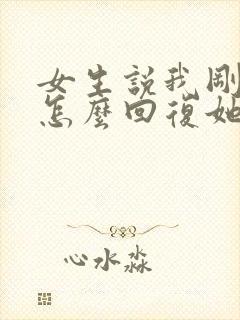 女生説我剛
怎麼回復她
心水淼